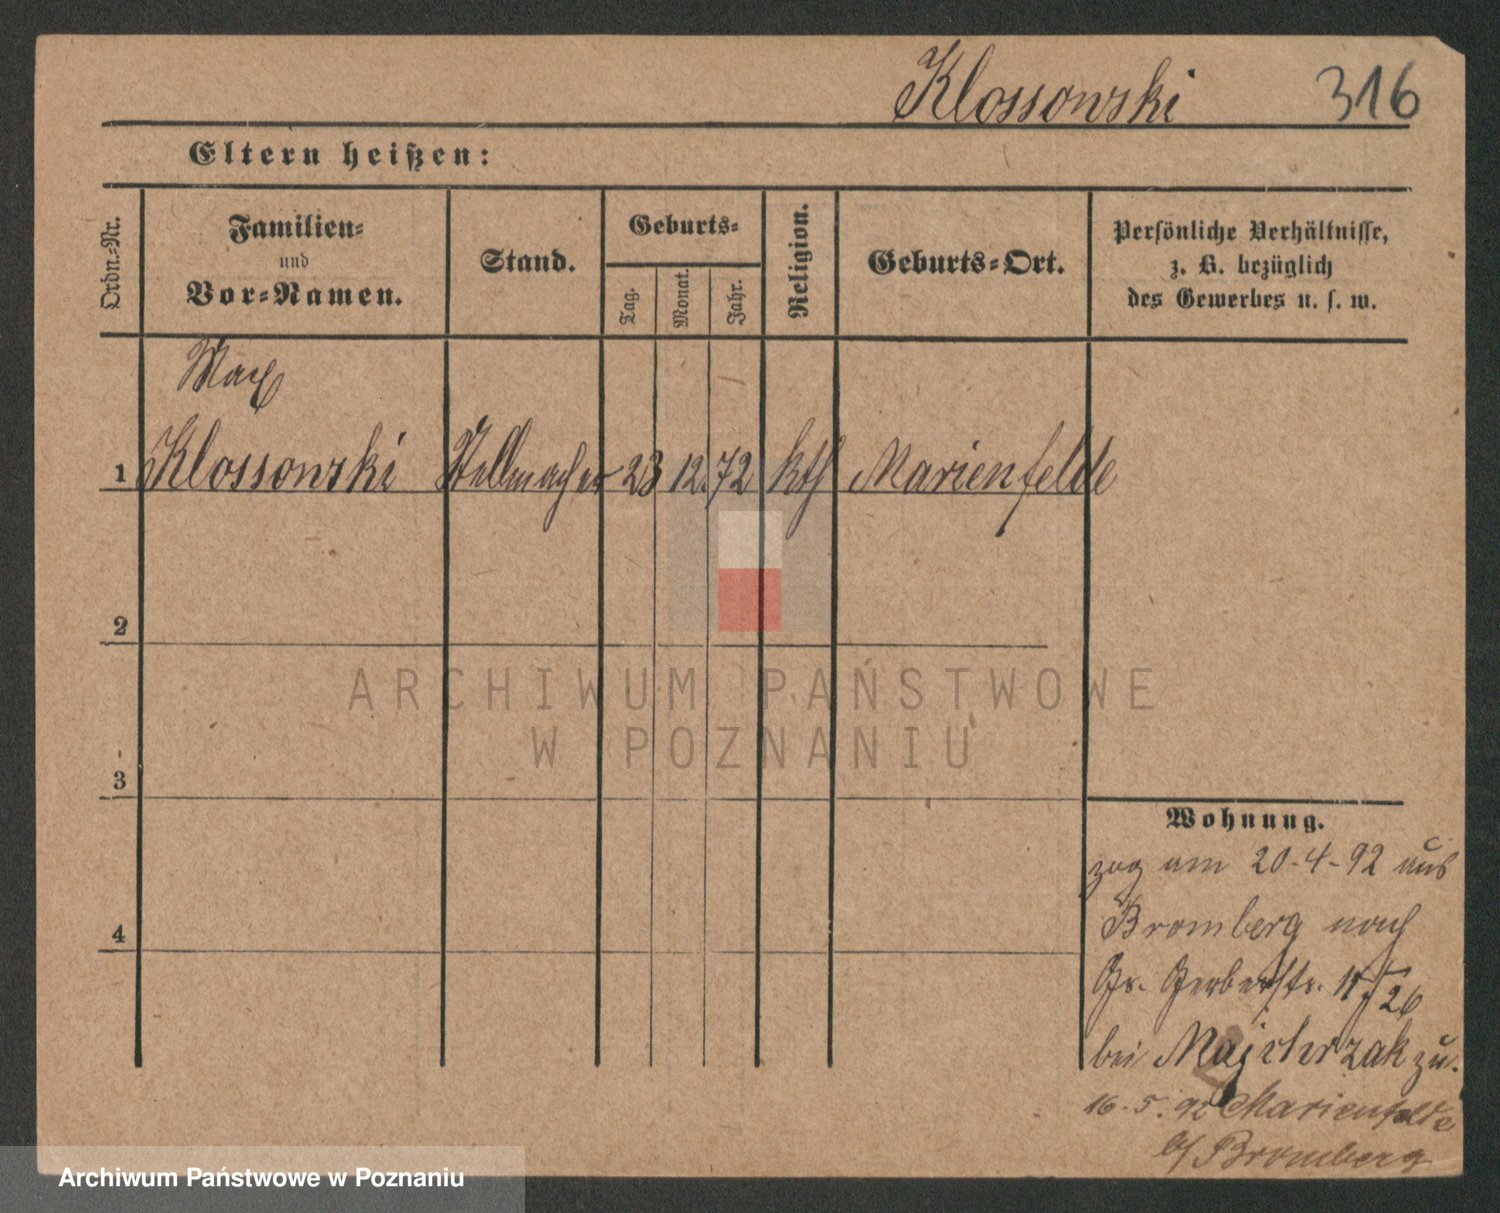 Klossowski 316
Eltern heißen:
Ordn.-Nr.
Familien-
und
Vor-Namen.
Stand.
Geburts-
Tag.
Monat.
Jahr.
Religion.
Geburts-Ort.
Persönliche Verhältnisse,
z. B. bezüglich
des Gewerbes u. s. w.
Max
1 Klossowski Stellmacher 23 12. 72 kth Marienfelde
2
3
4
Wohnung.
zog am 20-4-92 aus
Bromberg nach
Gr. Gerberstr. 11/26
bei Majchrzak zu.
16-5.92 Marienfelde
b/ Bromberg
ARCHIWUM PAŃSTWOWE
W POZNANIU
Archiwum Państwowe w Poznaniu